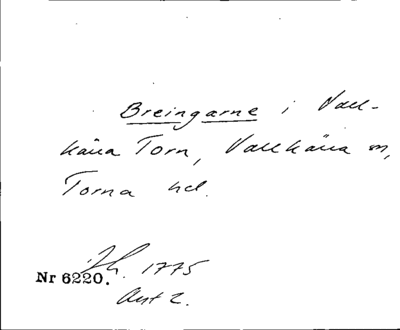 Breingarne i Vall-
kärra Torn, Vallkärra sn,
Torna hd.
Nr 6220. 1775
Akt 2.